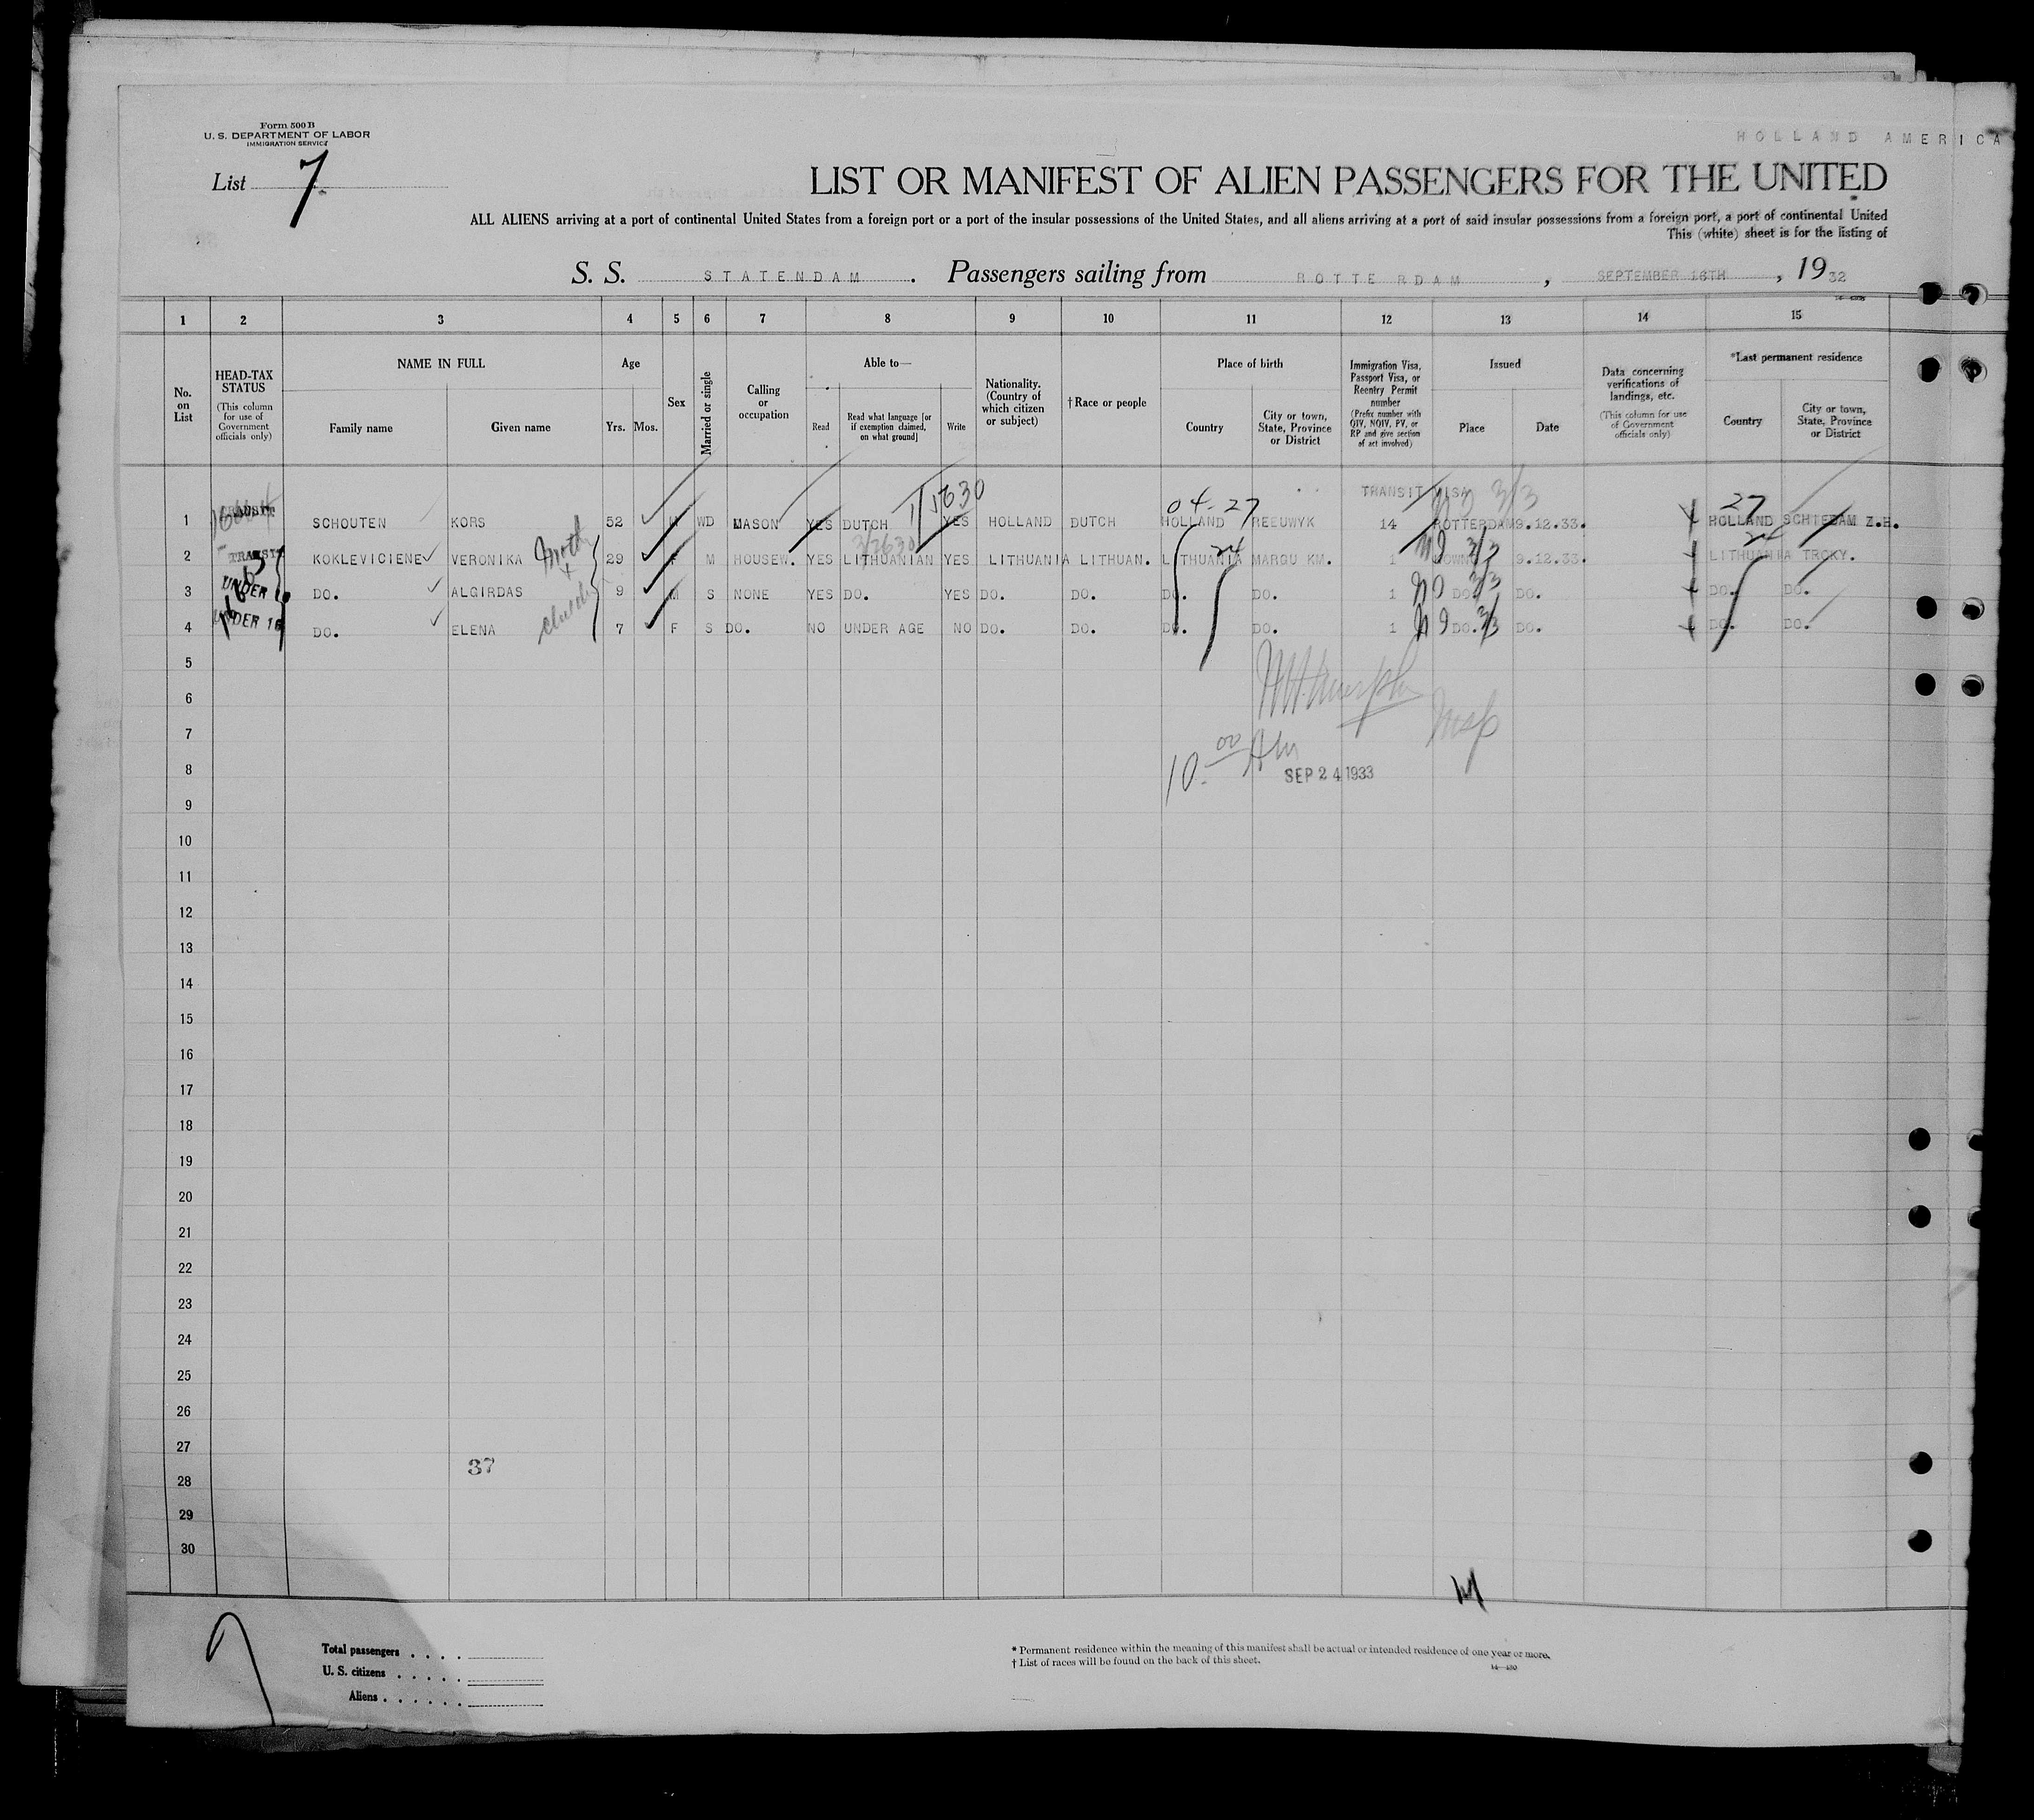 Form 500 B
U. S. DEPARTMENT OF LABOR
IMMIGRATION SERVICE
HOLLAND AMERICA
List 7
LIST OR MANIFEST OF ALIEN PASSENGERS FOR THE UNITED
ALL ALIENS arriving at a port of continental United States from a foreign port or a port of the insular possessions of the United States, and all aliens arriving at a port of said insular possessions from a foreign port, a port of continental United
This (white) sheet is for the listing of
S. S. STATENDAM. Passengers sailing from ROTTERDAM, SEPTEMBER 16TH, 1932
1 2 3 4 5 6 7 8 9 10 11 12 13 14 15
No. on List
HEAD-TAX STATUS
(This column for use of Government officials only)
NAME IN FULL
Family name Given name
Age
Yrs. Mos.
Sex
Married or single
Calling or occupation
Able to—
Read Read what language [or if exemption claimed, on what ground] Write
Nationality. (Country of which citizen or subject)
†Race or people
Place of birth
Country City or town, State, Province or District
Immigration Visa, Passport Visa, or Reentry Permit number
(Prefix number with QIV, NQIV, PV, or RP and give section of act involved)
Issued
Place Date
Data concerning verifications of landings, etc.
(This column for use of Government officials only)
*Last permanent residence
Country City or town, State, Province or District
1/1630 04-27 TRANSIT VISA 3/3 27
1 TRANSIT SCHOUTEN KORS 52 M WD MASON YES DUTCH YES HOLLAND DUTCH HOLLAND REEUWYK 14 ROTTERDAM 9.12.33. HOLLAND SCHIEDAM Z.H.
3/2630 24 3/3 24
2 TRANSIT KOKLEVICIENE VERONIKA Moth + 29 F M HOUSEW. YES LITHUANIAN YES LITHUANIA LITHUAN. LITHUANIA MARGU KM. 1 KOWNO 9.12.33. LITHUANIA TROKY.
3 UNDER 16 DO. ALGIRDAS 9 M S NONE YES DO. YES DO. DO. DO. DO. 1 DO. 3/3 DO. DO. DO.
4 UNDER 16 DO. ELENA 7 F S DO. NO UNDER AGE NO DO. DO. DO. DO. 1 DO. 3/3 DO. DO. DO.
5
6
7
10.00 AM
8 SEP 24 1933
9
10
11
12
13
14
15
16
17
18
19
20
21
22
23
24
25
26
27
37
28
29
30
M
Total passengers
U. S. citizens
Aliens
* Permanent residence within the meaning of this manifest shall be actual or intended residence of one year or more.
† List of races will be found on the back of this sheet.